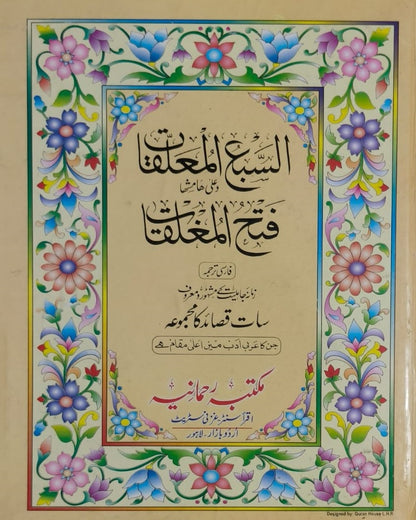 السبع المعلقات
وعلى هامشها
فتح المغلقات
فارسی ترجمہ
زمانہ جاہلیت کے مشہور و معروف
سات قصائد کا مجموعہ
جن کا عربی ادب میں اعلیٰ مقام ہے
مکتبہ رحمانیہ
اقرا سنٹر غزنی سٹریٹ
اردو بازار ۔ لاہور
Designed by: Quran House LHR